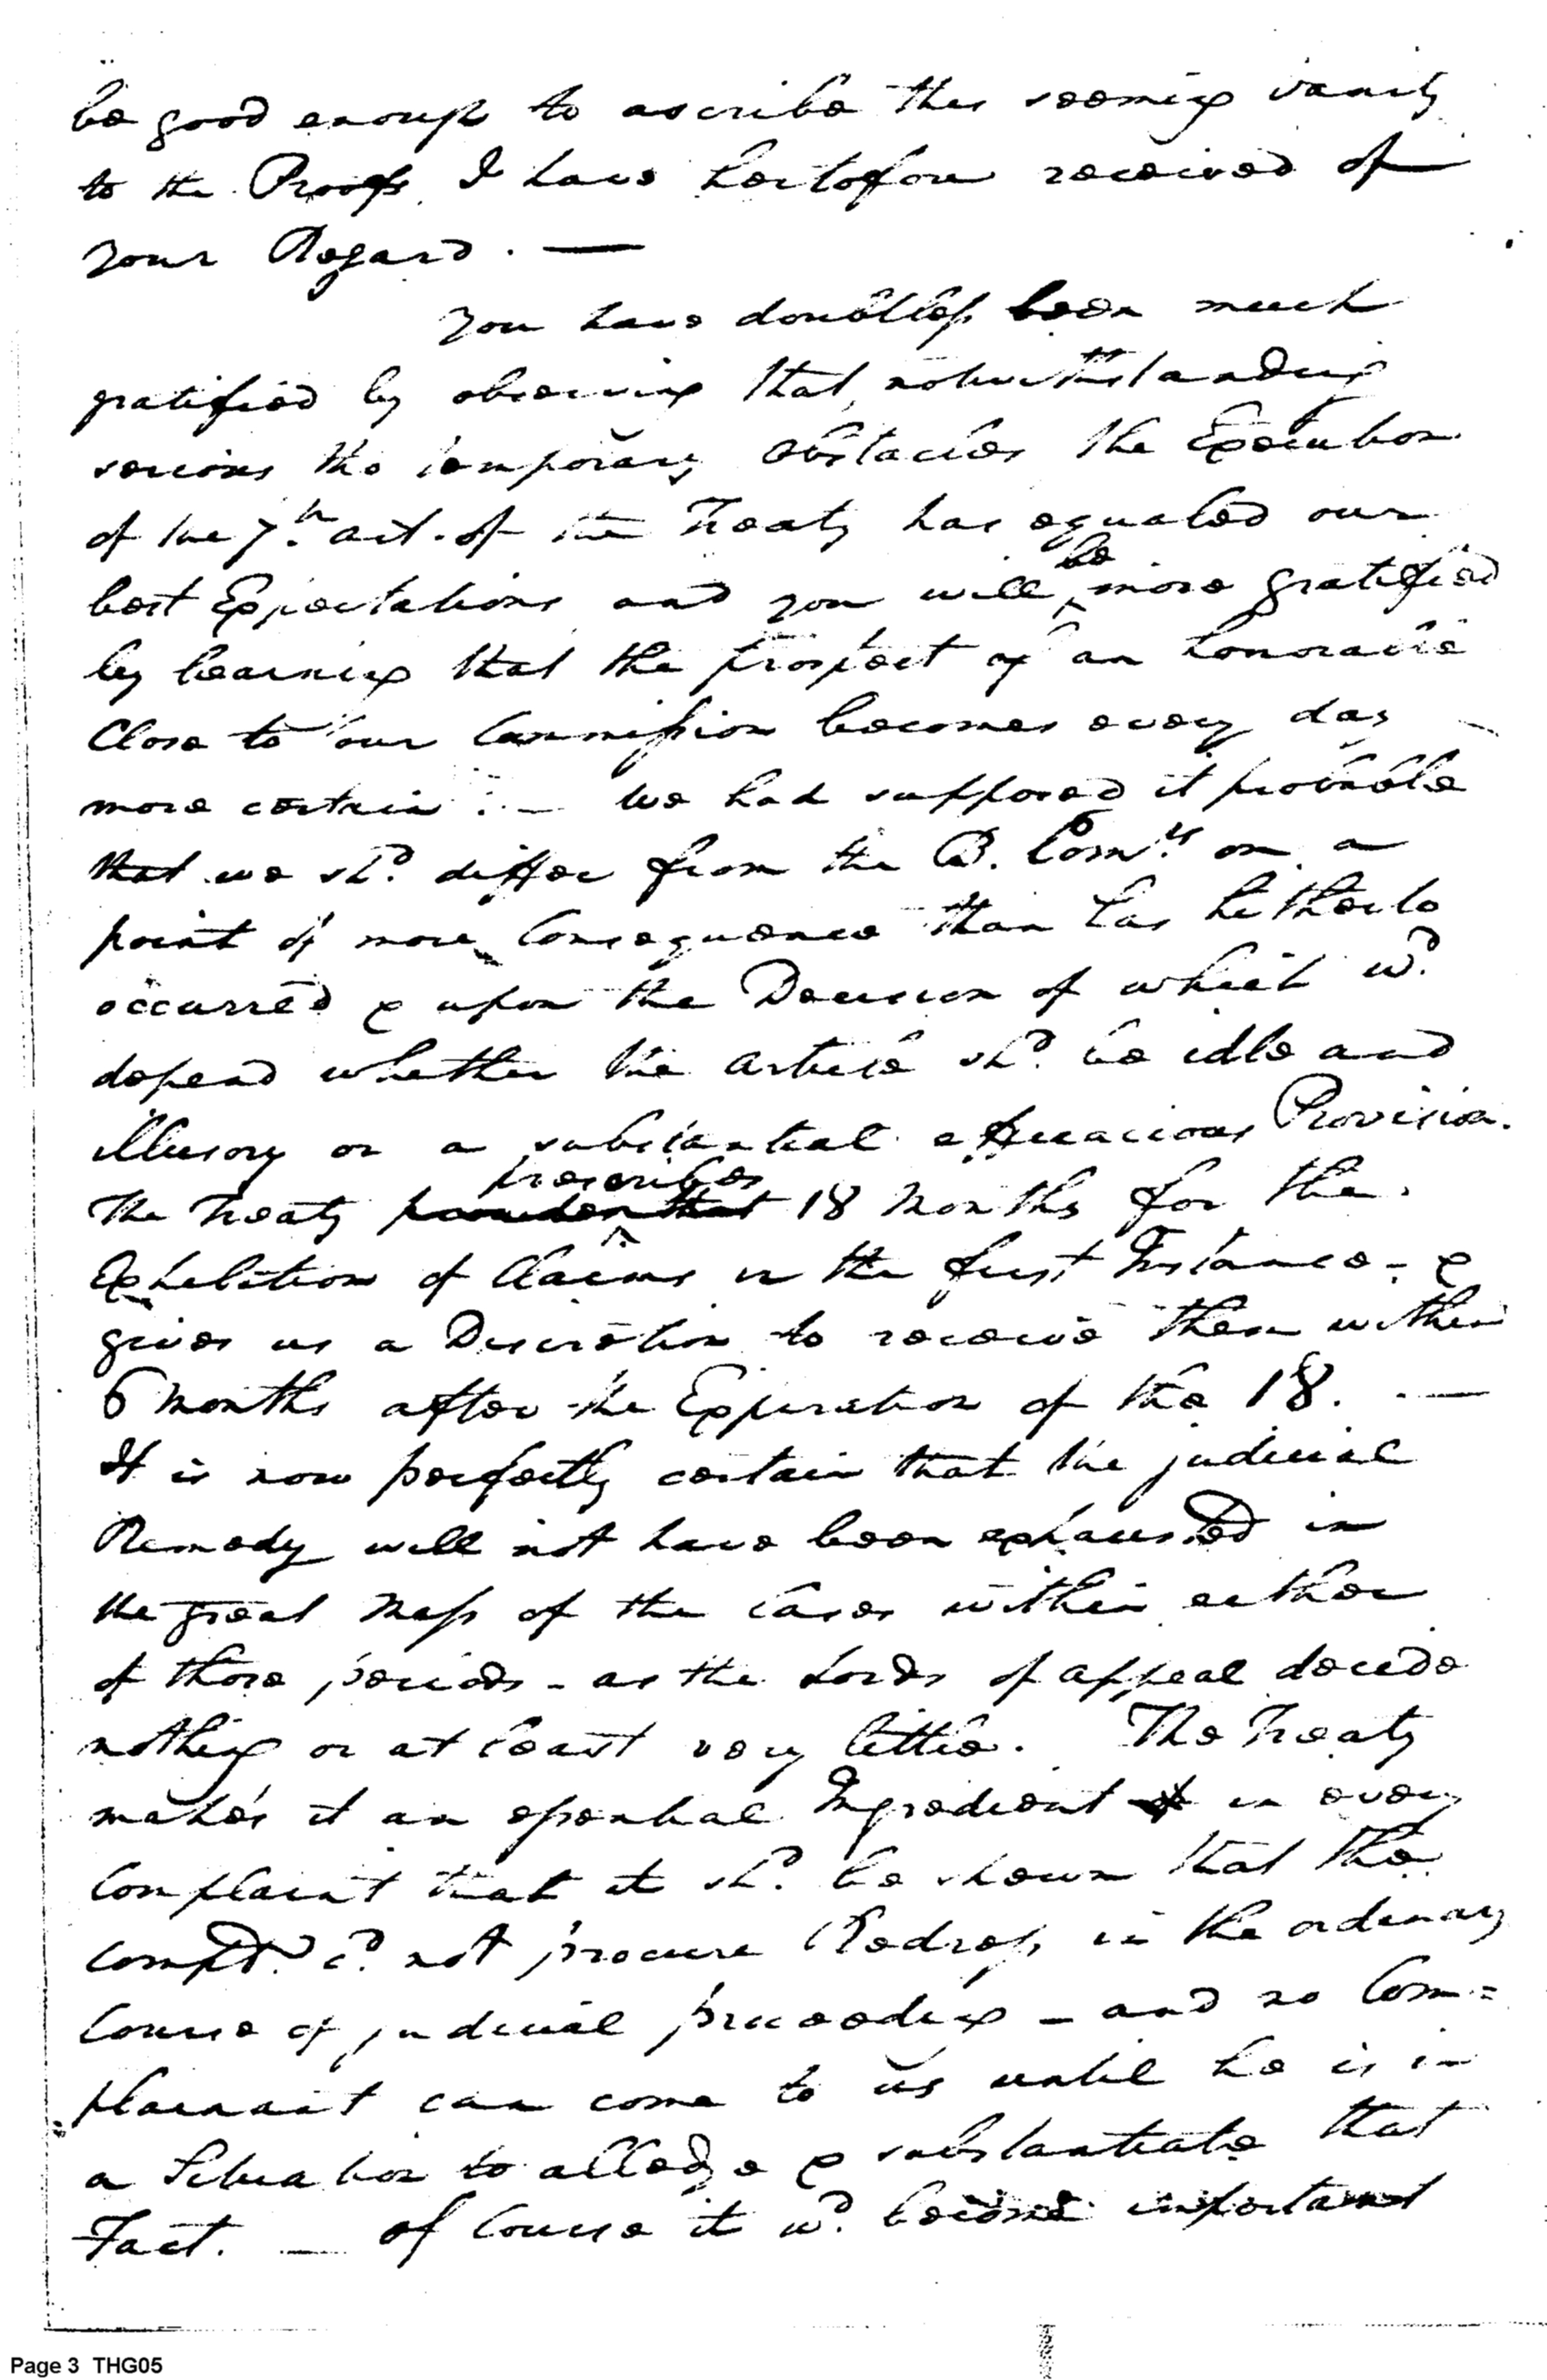 be good enough to ascribe this seeming vanity
to the Proofs I have heretofore received of
your Regard. —
You have doubtless been much
gratified by observing that, notwithstanding
serious tho temporary Obstacles the Execution
of the 7th. art. of the Treaty has equaled our
best Expectations and you will be more gratified
by learning that the prospect of an honorable
Close to our Commission becomes every day
more certain. — We had supposed it probable
that we shd. differ from the B. Comrs. on a
point of more Consequence than has hitherto
occurred & upon the Decision of which wd.
depend whether the article shd. be idle and
illusory or a substantial efficacious Provision.
The Treaty prescribes 18 Months for the
Exhibition of Claims in the first Instance - &
gives us a Discretion to receive them within
6 Months after the Expiration of the 18. —
It is now perfectly certain that the judicial
Remedy will not have been exhausted in
the great Mass of the Cases within either
of those periods - as the Lords of appeal decide
nothing or at least very little. The Treaty
makes it an essential Ingredient in every
Complaint that it shd. be shown that the
Compt. cd. not procure Redress in the ordinary
Course of judicial proceeding - and no Com=
plainant can come to us until he is in
a Situation to alledge & substantiate that
Fact. — Of Course it wd. become important
Page 3 THG05